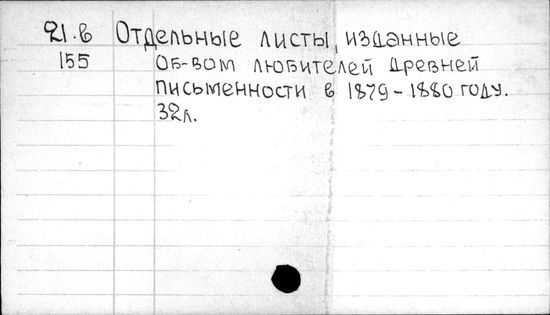 21.в Отдельные листы, изданные
155 об-вом любителей древней
письменности в 1879-1880 году.
32л.